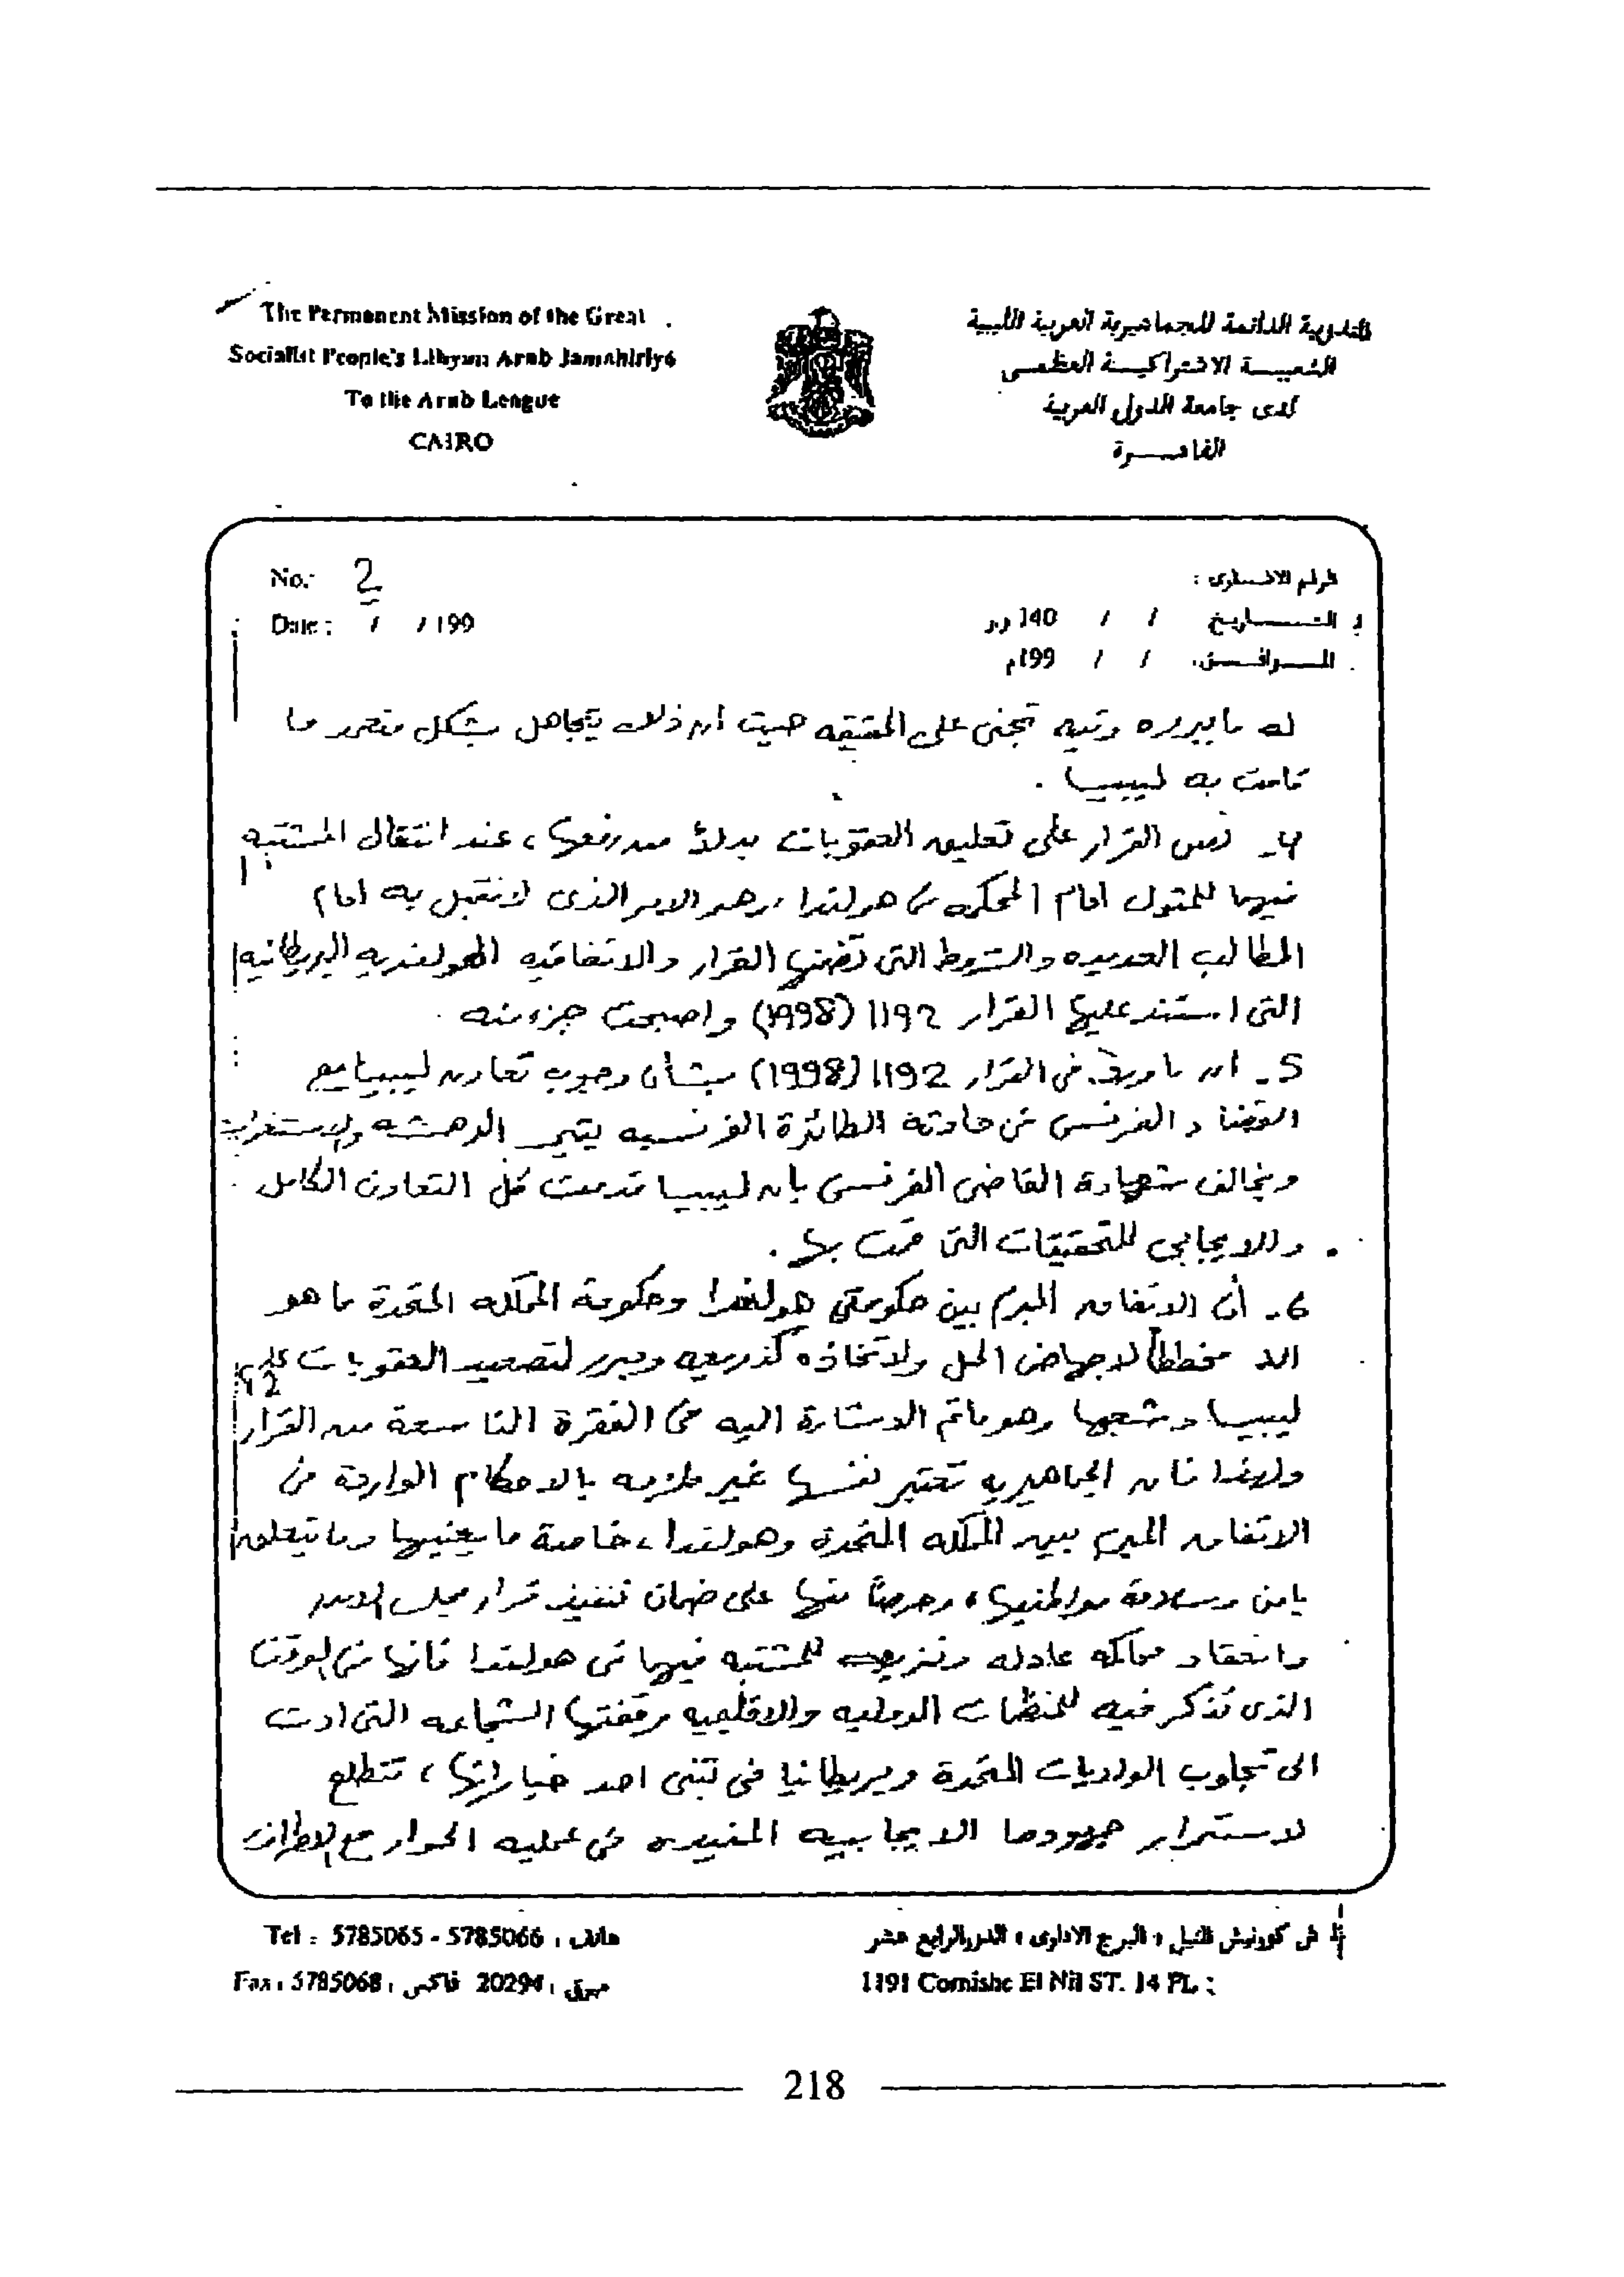 The Permanent Mission of the Great
Socialist People's Libyan Arab Jamahiriya
To the Arab League
CAIRO
المندوبية الدائمة للجماهيرية العربية الليبية
الشعبيــة الاشتراكيــة العظمــى
لدى جامعة الدول العربية
القاهـــرة
No.: 2
Date: / / 199
الرقم الاشـارى :
التـــاريخ / / 140 و.ر
المـــوافـــق. / / 199م
له ما يبرره وفيه تجنى على الحقيقه حيث ان ذلك يتجاهل بشكل متعمد ما
قامت به ليبيا .
4- نص القرار على تعليق العقوبات بدلاً من رفعها ، عند انتقال المشتبه
فيهما للمثول امام المحكمه فى هولندا ، وهو الامر الذى لا نقبل به امام
المطالب العديده والشروط التى تضمنها القرار والاتفاقيه الهولنديه البريطانيه
التى استند عليها القرار 1192 (1998) واصبحت جزء منه .
5- ان ما ورد فى القرار 1192 (1998) بشأن وجوب تعاون ليبيا مع
القضاء الفرنسى فى حادثة الطائرة الفرنسيه يثير الدهشه والاستغراب
ويخالف شهادة القاضى الفرنسى بان ليبيا قدمت كل التعاون الكامل
والايجابى للتحقيقات التى قمت بها .
6- أن الاتفاق المبرم بين حكومتي هولندا وحكومة المملكه المتحدة ما هو
الا مخططاً لاجهاض الحل ولاتخاذه كذريعه ومبرر لتصعيد العقوبات على
ليبيا وشعبها وهو ماتم الاشارة اليه فى الفقرة التاسعة من القرار
ولهذا فان الجماهيريه تعتبر نفسها غير ملزمه بالاحكام الواردة فى
الاتفاق المبرم بين المملكه المتحدة وهولندا ، خاصة ما يعنيها وما يتعلق
بامن وسلامة مواطنيها ، وحرصاً منها على ضمان تنفيذ قرار مجلس الامن
وانعقاد محاكمه عادله ونزيهه للمشتبه فيهما فى هولندا فانها فى الوقت
الذى تذكر فيه للمنظمات الدوليه والاقليميه وقفتها الشجاعه التى ادت
الى تجاوب الولايات المتحدة وبريطانيا فى تبنى احد خياراتها ، تتطلع
لاستمرار جهودها الايجابيه المفيده فى عمليه الحوار مع الاطراف
Tel : 5785065 - 5785066 ، هاتف
Fax : 5785068 ، فاكس 20294 ، مبرق
ش كورنيش النيل ، البرج الادارى ، الدور الرابع عشر
1191 Cornishe El Nil ST. 14 FL :
218